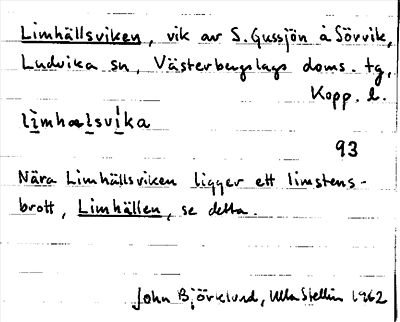 Limhällsviken, vik av S. Gussjön å Sörvik,
Ludvika sn, Västerbergslags doms. tg,
Kopp. l.
lìmhælsvìka
93
Nära Limhällsviken ligger ett limstens-
brott, Limhällen, se detta.
John Björklund, Ulla Stellin 1962